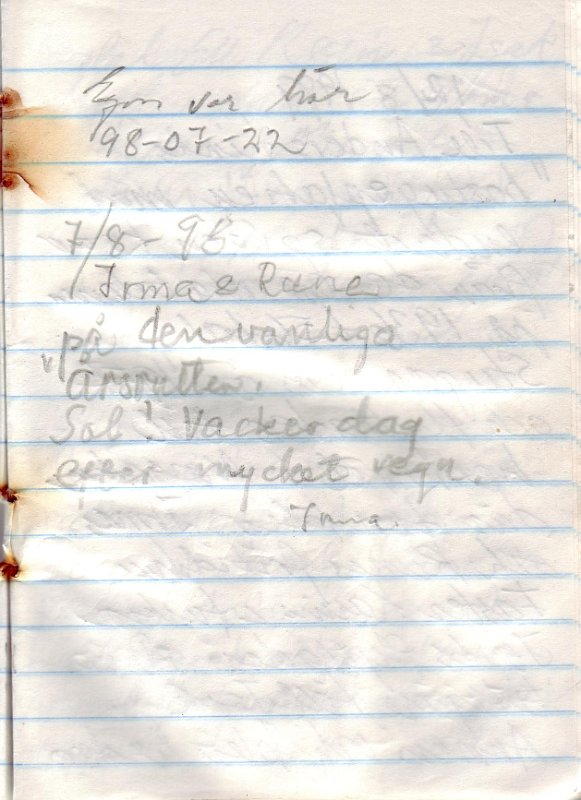 Egon var här
98-07-22
7/8-98
Irma & Rune
på den vanliga
Årsrutten.
Sol! Vacker dag
efter mycket regn.
Irma.